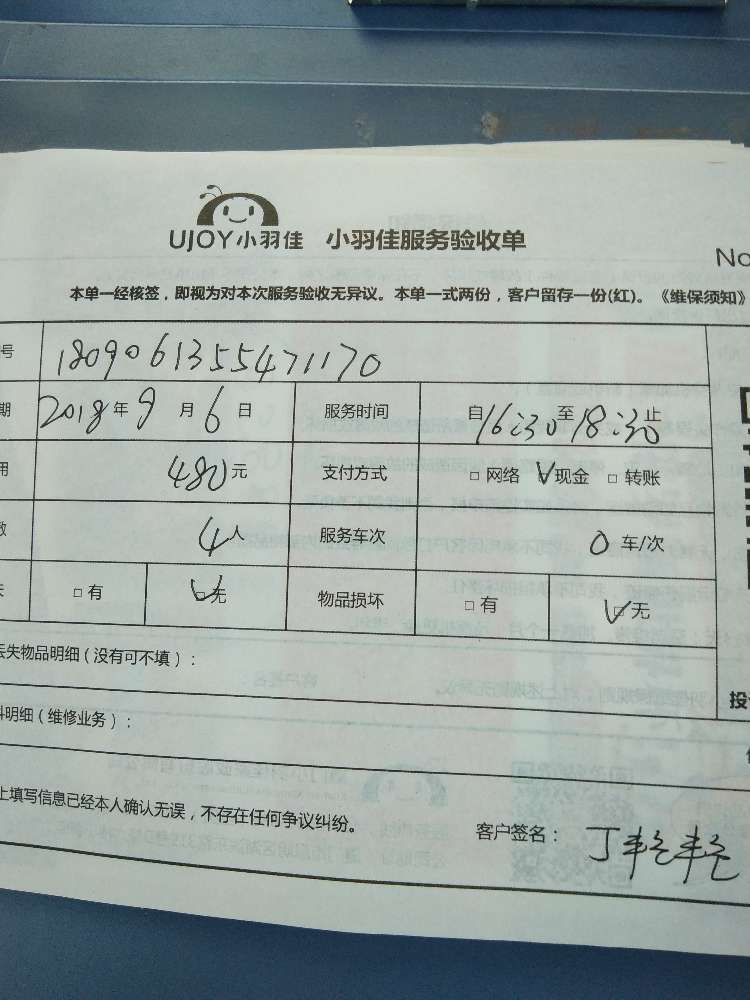 UJOY小羽佳 小羽佳服务验收单
No
本单一经核签，即视为对本次服务验收无异议。本单一式两份，客户留存一份(红)。《维保须知》
号 1809061355471170
期 2018年9月6日 服务时间 自16:30至18:30止
用 480元 支付方式 □网络 √现金 □转账
数 4人 服务车次 0车/次
失 □有 √无 物品损坏 □有 √无
丢失物品明细(没有可不填)：
料明细(维修业务)：
上填写信息已经本人确认无误，不存在任何争议纠纷。
客户签名：丁艳艳
投